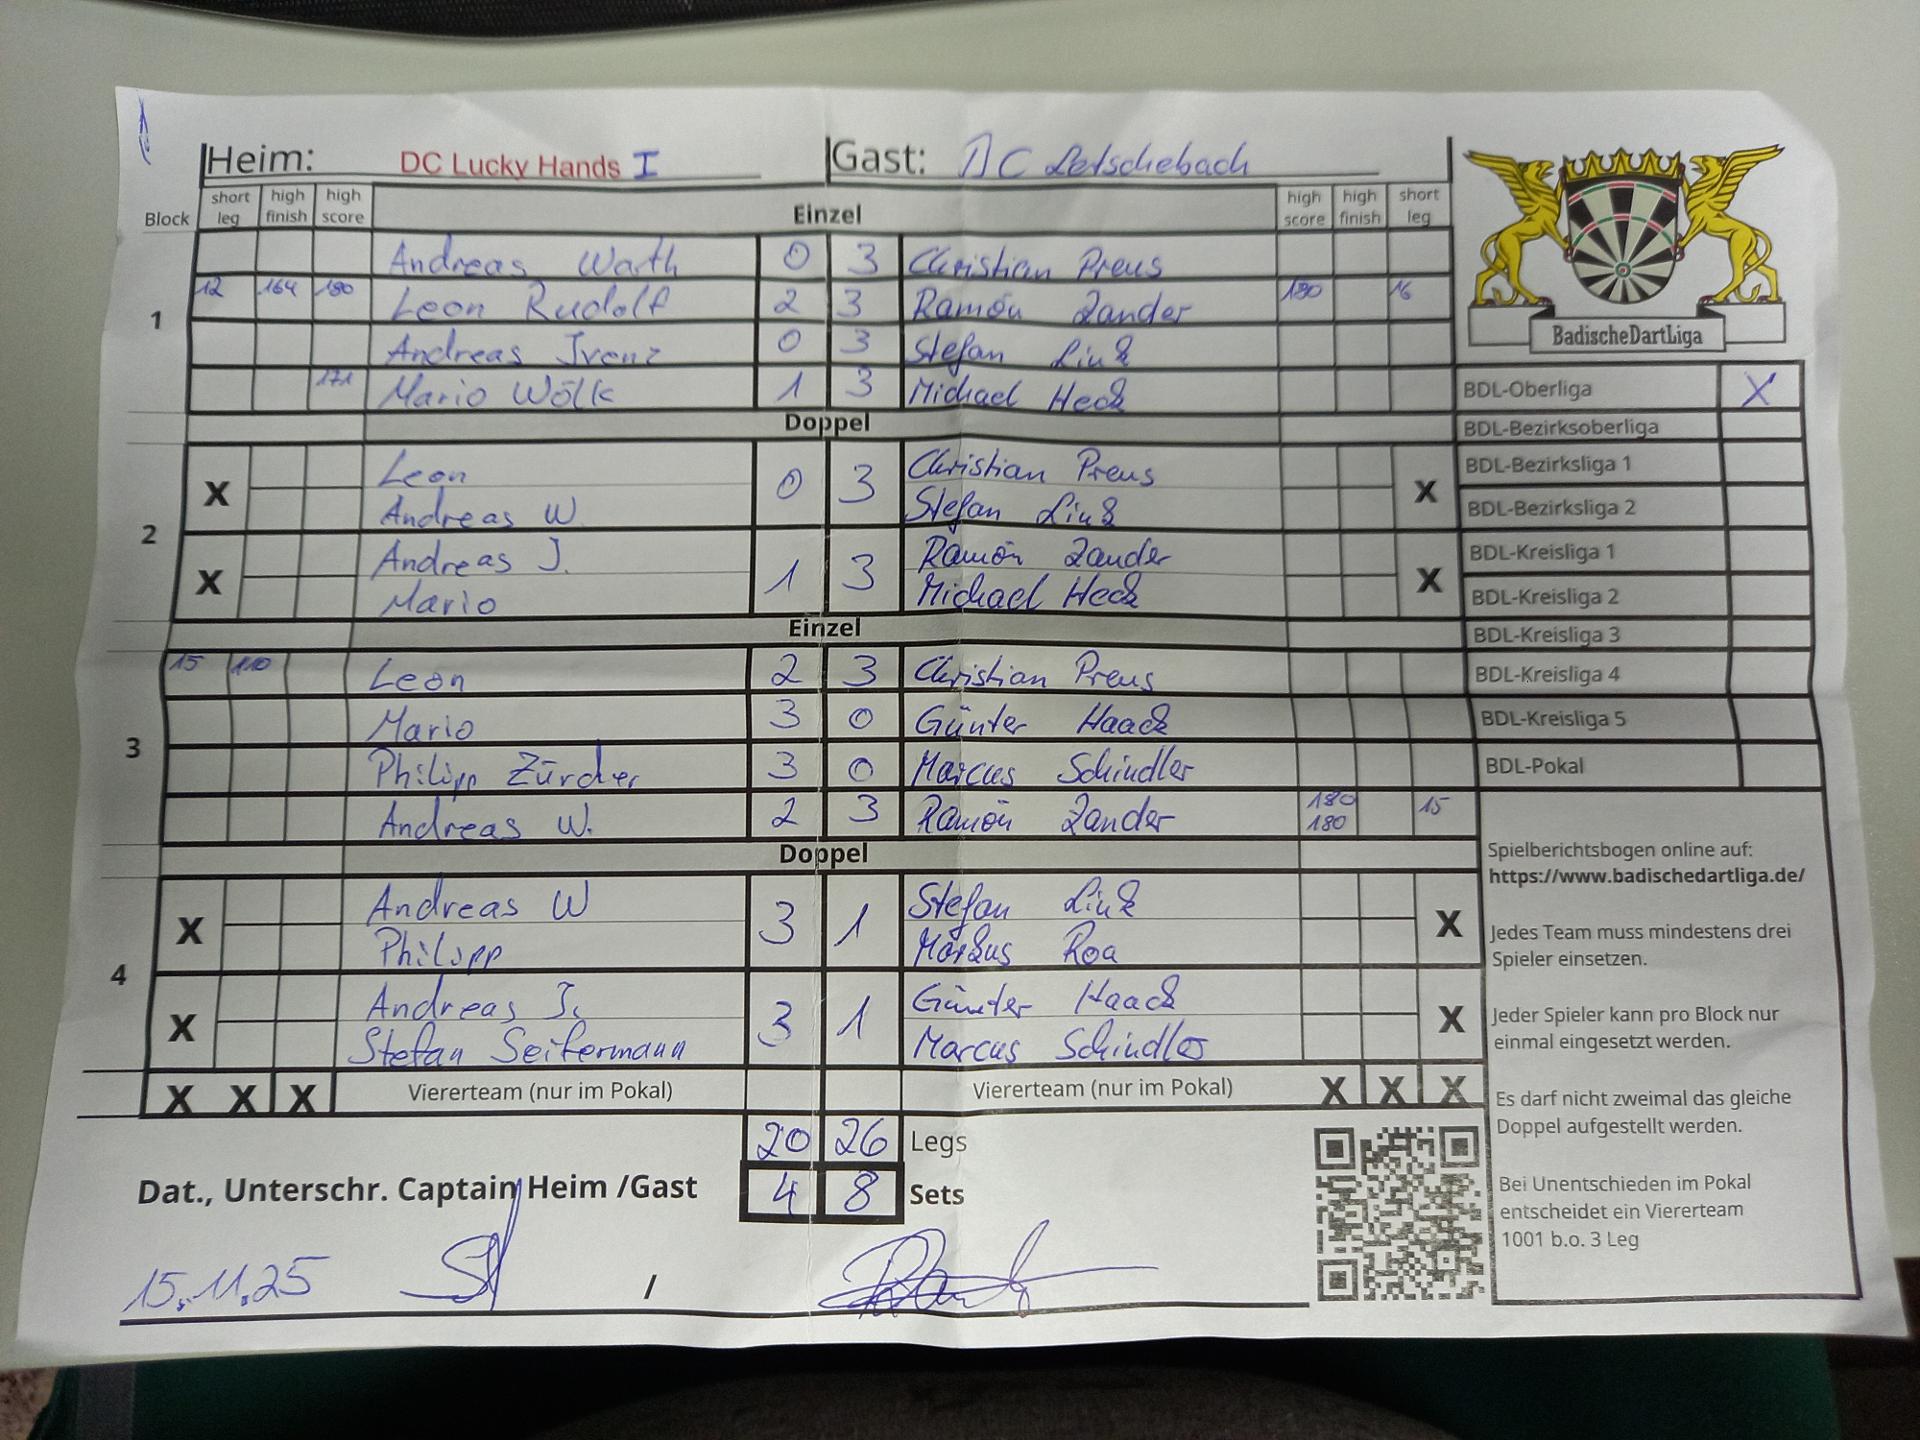 Heim: DC Lucky Hands I Gast: DC Letschebach
Block short leg high finish high score Einzel high score high finish short leg
Andreas Warth 0 3 Christian Preus
1 12 164 180 Leon Rudolf 2 3 Ramón Zander 180 16
Andreas Irenz 0 3 Stefan Link
171 Mario Wölk 1 3 Michael Heck
Doppel
2
X Leon 0 3 Christian Preus X
Andreas W. Stefan Link
X Andreas J. 1 3 Ramón Zander X
Mario Michael Heck
Einzel
3
15 110 Leon 2 3 Christian Preus
Mario 3 0 Günter Haack
Philipp Zürcher 3 0 Marcus Schindler
Andreas W. 2 3 Ramón Zander 180 180 15
Doppel
4
X Andreas W 3 1 Stefan Link X
Philipp Markus Roa
X Andreas J. 3 1 Günter Haack X
Stefan Seifermann Marcus Schindler
X X X Viererteam (nur im Pokal) Viererteam (nur im Pokal) X X X
20 26 Legs
Dat., Unterschr. Captain Heim /Gast 4 8 Sets
15.11.25 /
BadischeDartLiga
BDL-Oberliga X
BDL-Bezirksoberliga
BDL-Bezirksliga 1
BDL-Bezirksliga 2
BDL-Kreisliga 1
BDL-Kreisliga 2
BDL-Kreisliga 3
BDL-Kreisliga 4
BDL-Kreisliga 5
BDL-Pokal
Spielberichtsbogen online auf:
https://www.badischedartliga.de/
Jedes Team muss mindestens drei
Spieler einsetzen.
Jeder Spieler kann pro Block nur
einmal eingesetzt werden.
Es darf nicht zweimal das gleiche
Doppel aufgestellt werden.
Bei Unentschieden im Pokal
entscheidet ein Viererteam
1001 b.o. 3 Leg